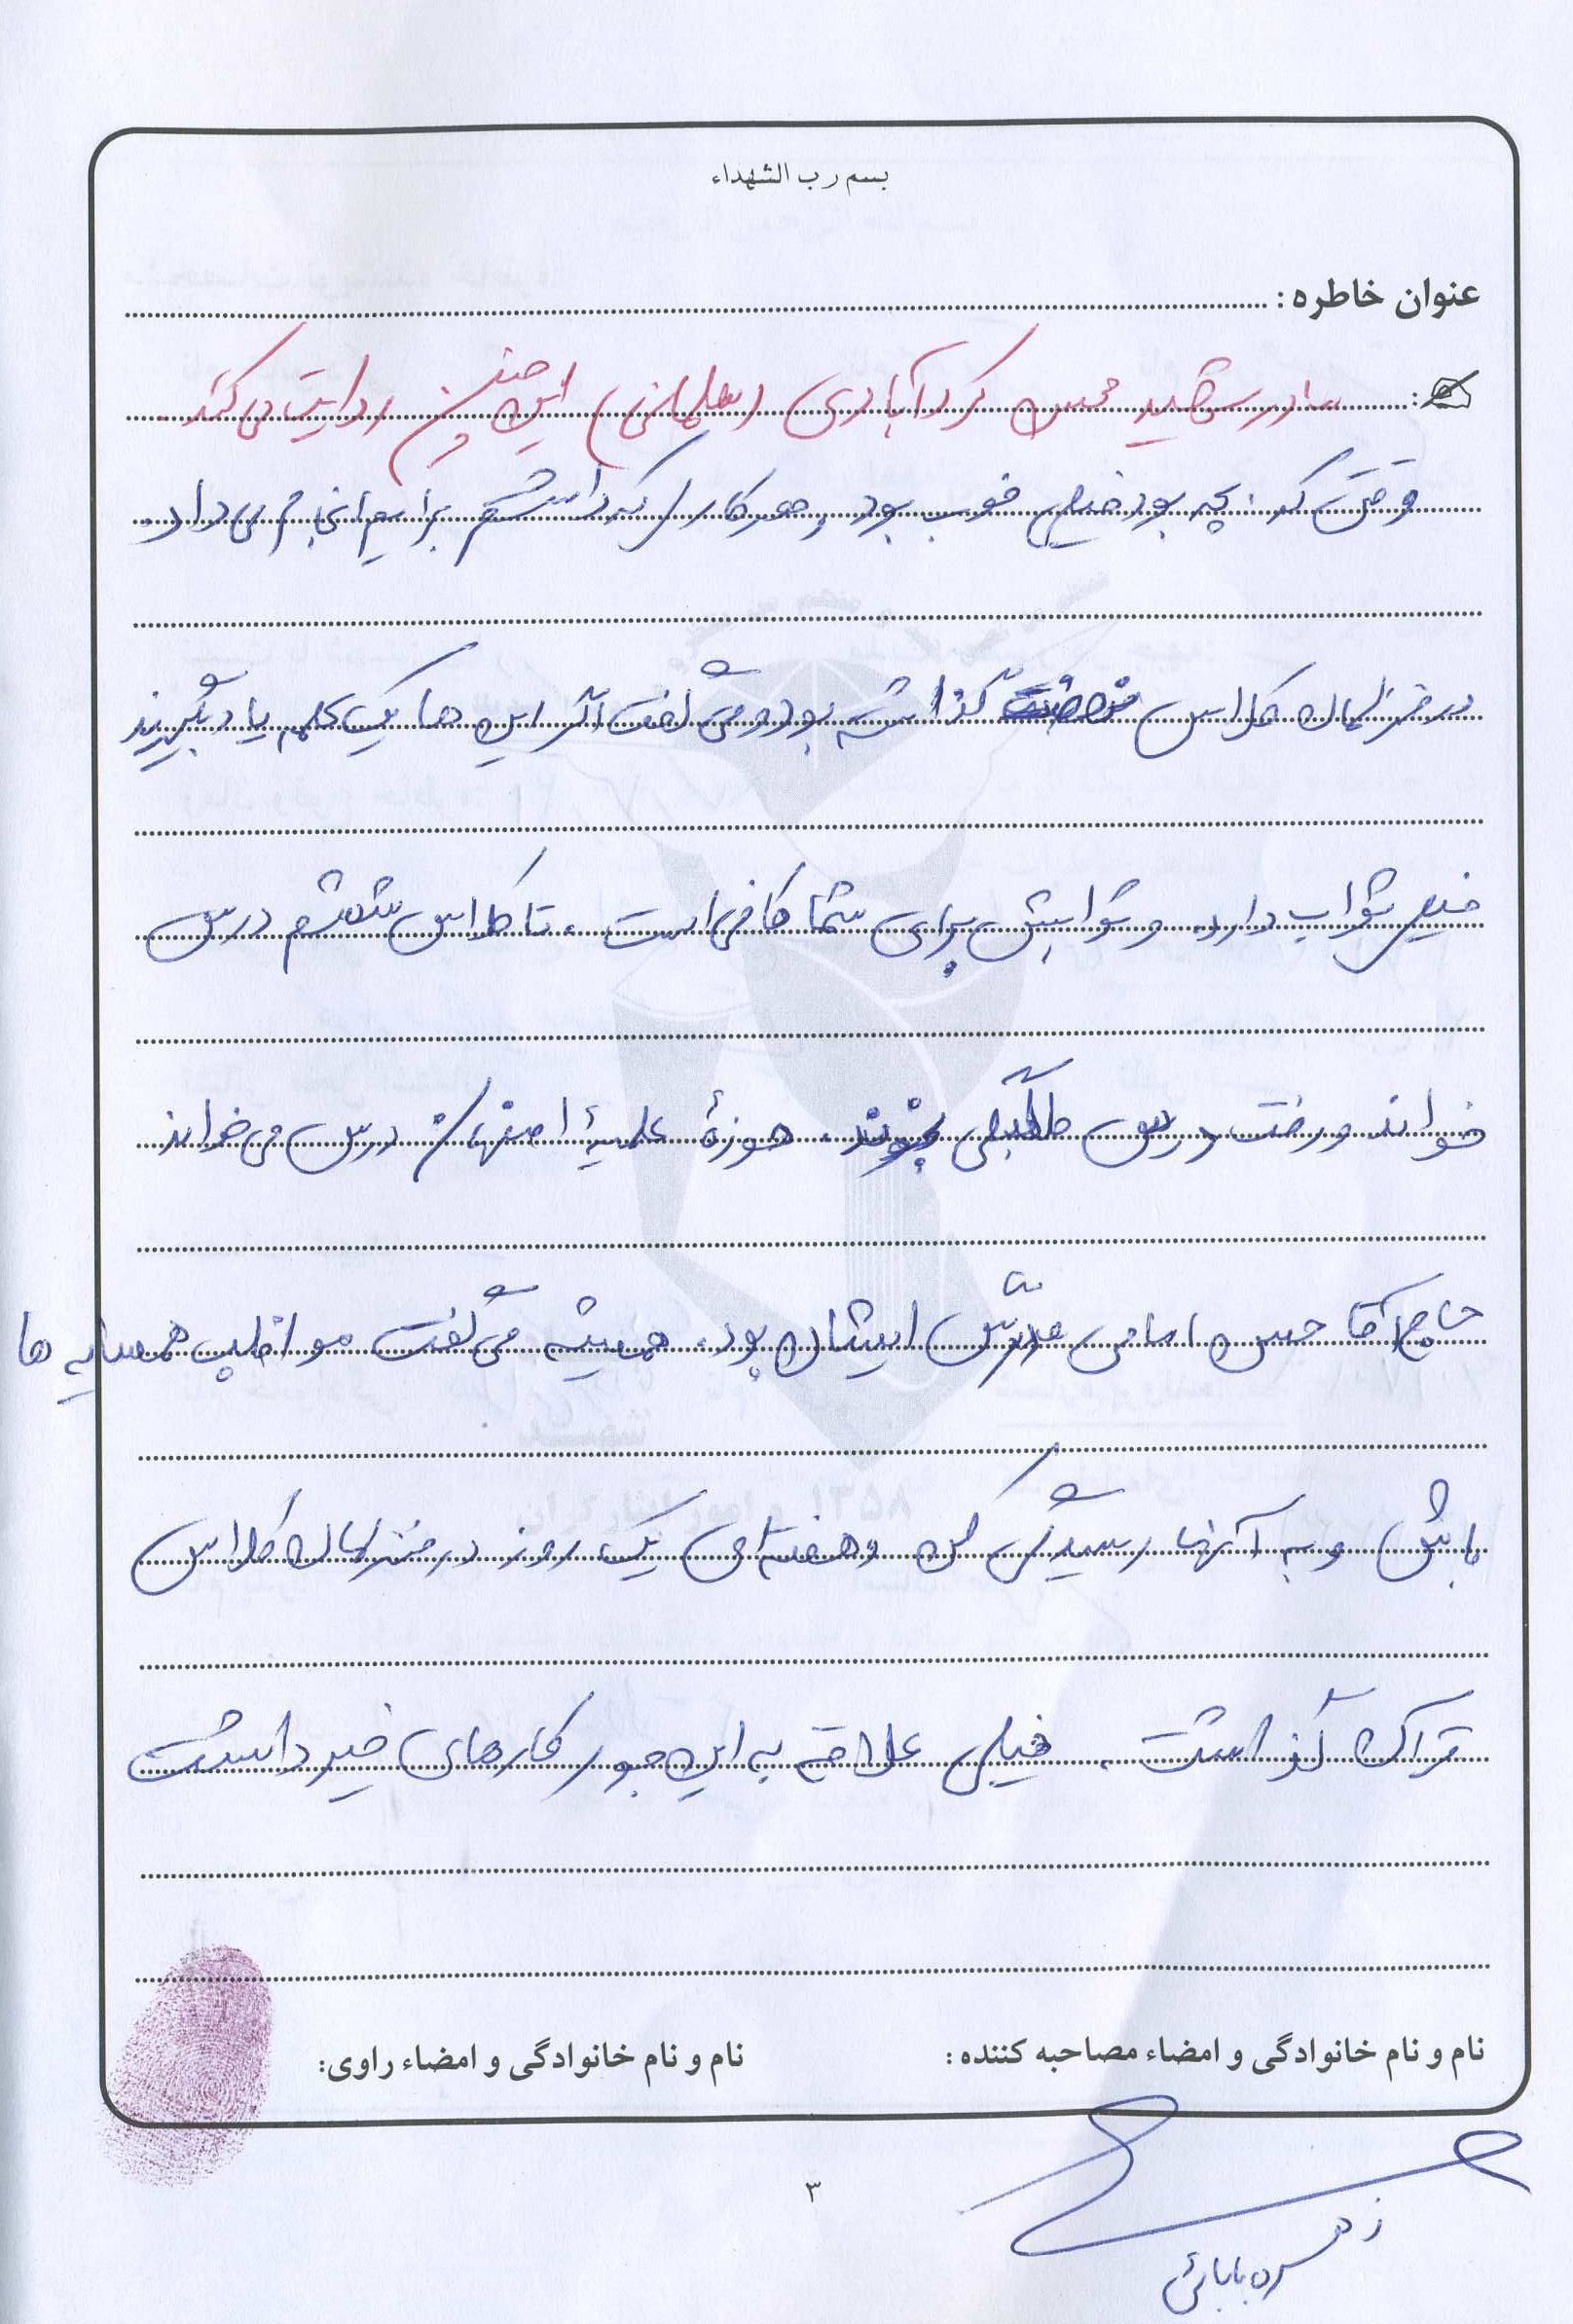 بسم رب الشهداء
عنوان خاطره :
مادر شهید محسن کردآبادی (سلمانی) این چنین روایت می کند
وقتی که بچه بود خیلی خوب بود و هر کار که داشتم برایم انجام می داد.
در منزلمان کلاس گذاشته بود و می گفت اگر این ها یک کلمه یاد بگیرند
خیلی ثواب دارد و ثوابش برای شما کافی است. تا کلاس ششم درس
خواند و رفت درس طلبگی بخوند. حوزهٔ علمیهٔ اصفهان درس می خواند
حاج آقا حسن امامی مدرّس ایشان بود. همیشه می گفت مواظب همسایه ها
باش و به آنها رسیدگی کن و هفته ای یک روز در منزلمان کلاس
قرآن گذاشت. خیلی علاقه به این جور کارهای خیر داشت
نام و نام خانوادگی و امضاء مصاحبه کننده : نام و نام خانوادگی و امضاء راوی:
۳
زهره بابائی